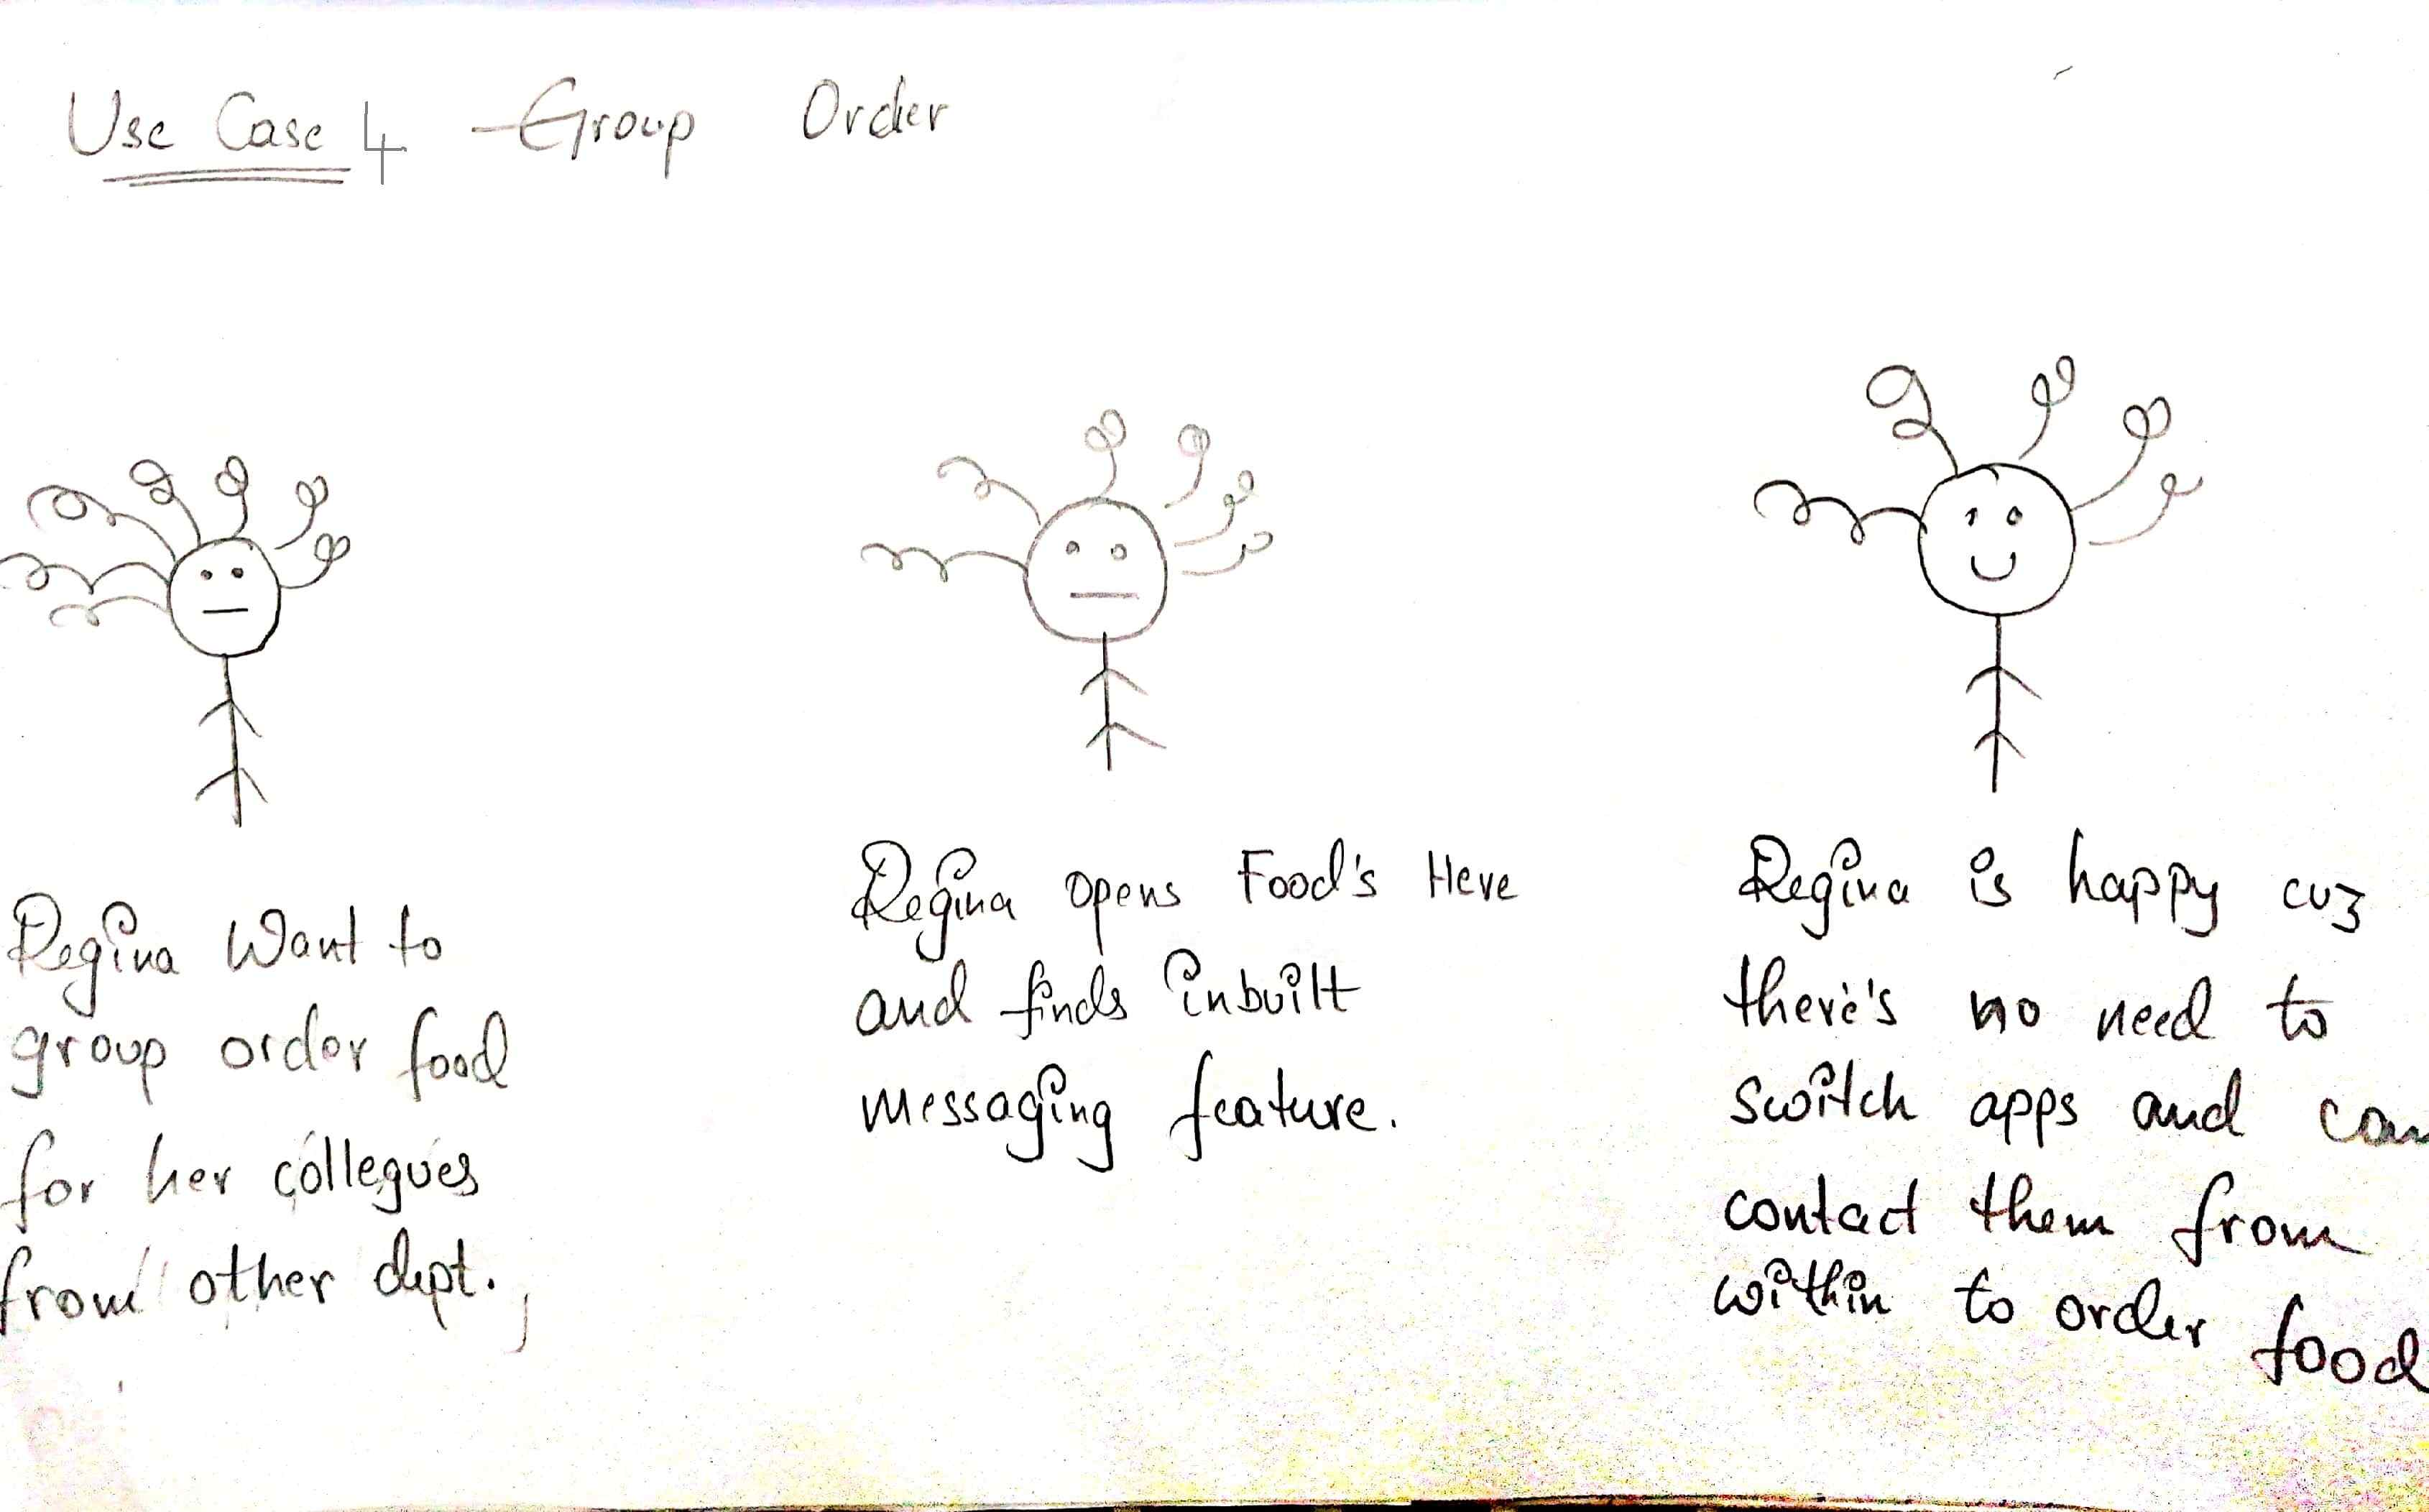 Use Case 4 - Group Order
Regina Want to
group order food
for her collegues
from other dept.,
Regina opens Food's Here
and finds inbuilt
messaging feature.
Regina is happy cuz
there's no need to
switch apps and can
contact them from
within to order food